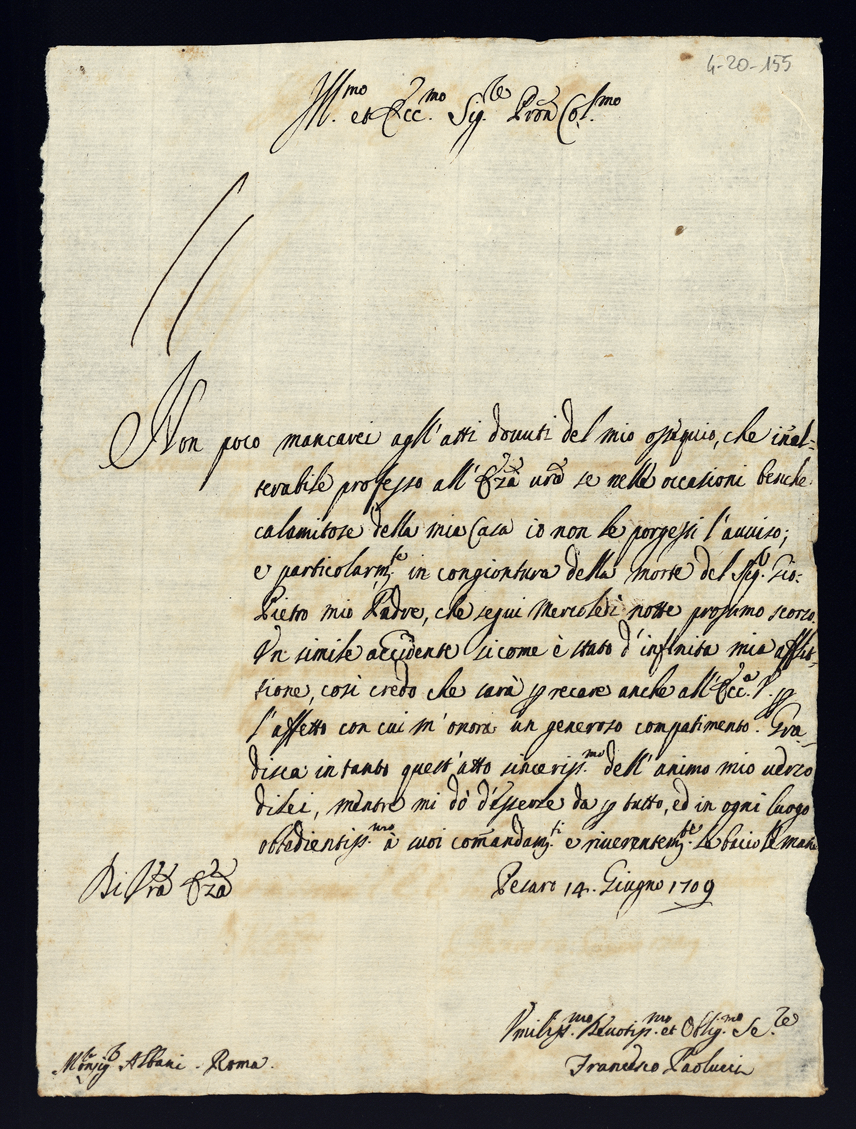 4-20-155
Ill.mo et Ecc.mo Sig.re Pron Col.mo
Non poco mancarei agl'atti douuti del mio ossequio, che inal=
terabile professo all'Ecza vra se nelle occasioni benche
calamitose della mia Casa io non le porgessi l'auuiso;
e particolarm.te in congiontura della morte del Sig.r Gio:
Pietro mio Padre, che seguì Mercoledì notte prossimo scorso.
Un simile accidente sicome è stato d'infinita mia afflit=
tione, così credo che sarà p recare anche all'Ecc.a V. p
l'affetto con cui m'onora un generoso compatimento. Gra=
disca in tanto quest'atto sinceriss.mo dell'animo mio verso
di lei, mentre mi dò d'essere da p tutto, ed in ogni luogo
obbedientiss.mo à suoi comandam.ti e riuerentem.te le bacio le mani
Di Vra Ecza
Pesaro 14. Giugno 1709
Vmiliss.mo Deuotiss.mo et Oblig.mo Se.re
Francesco Paolucci
Monsig.r Albani. Roma.